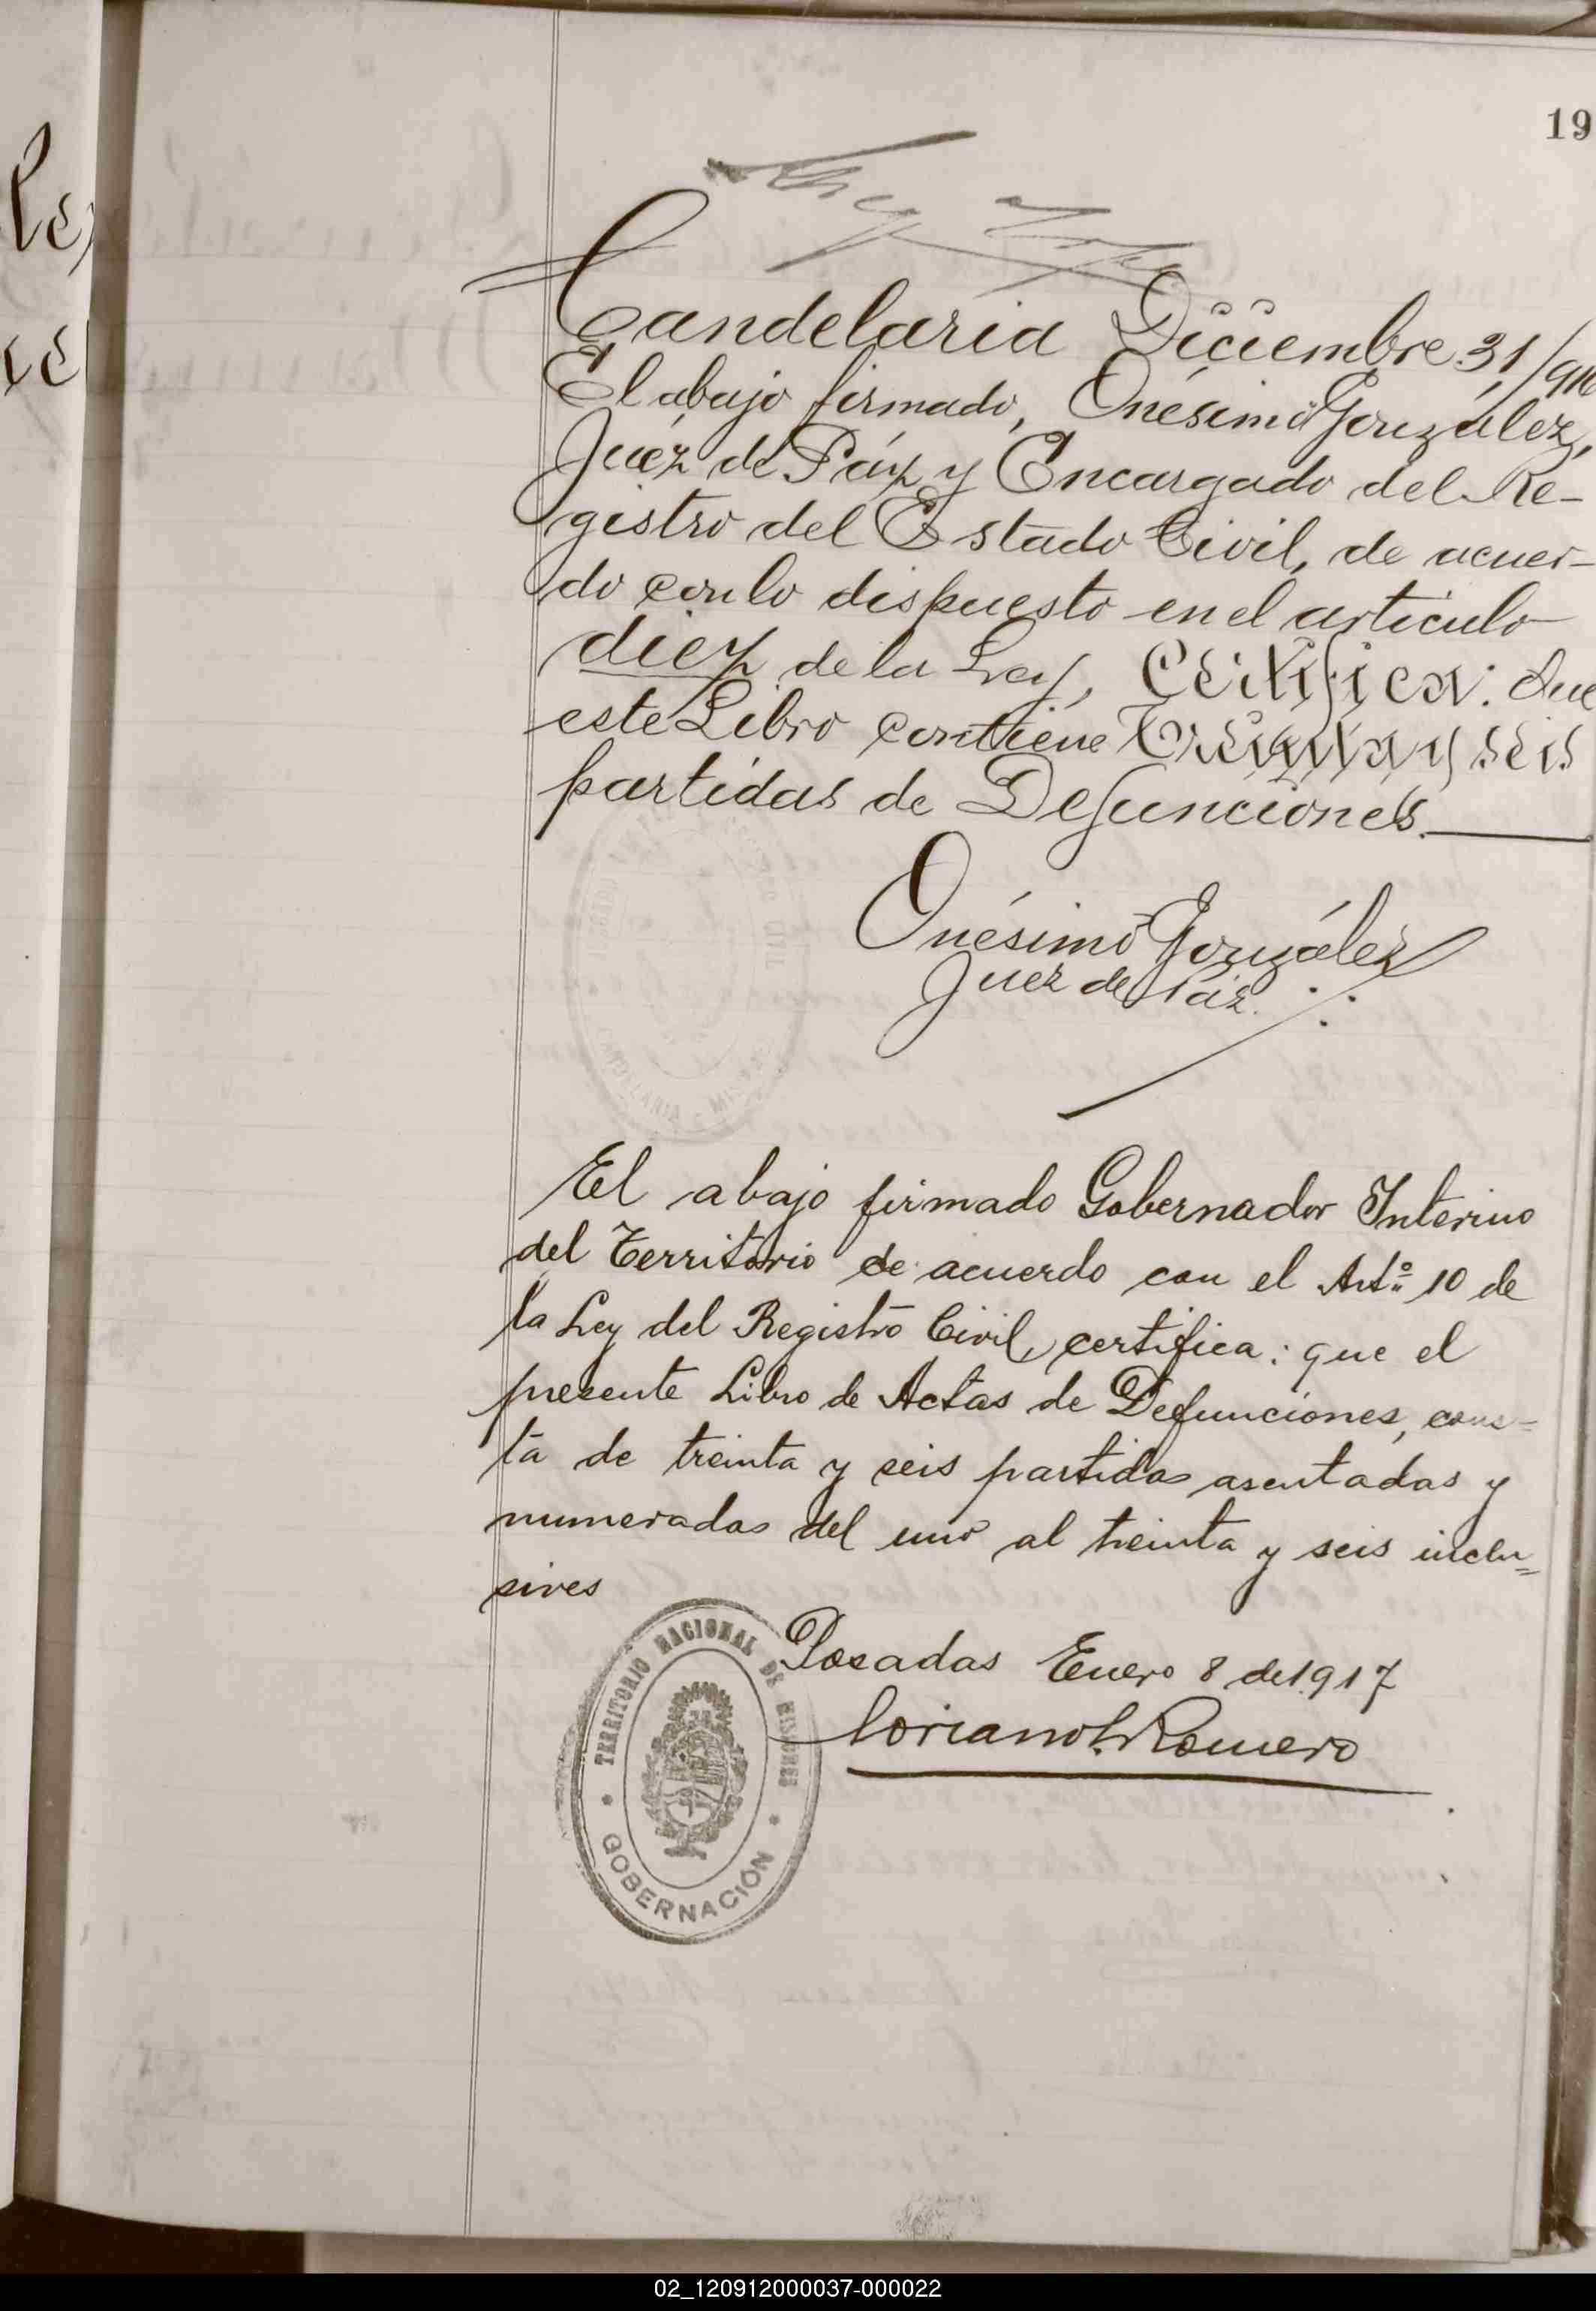 19
Candelaria Diciembre 31/916
El abajo firmado, Onésimo González,
Juéz de Páz y Encargado del Re-
gistro del Estado Civil, de acuer-
do con lo dispuesto en el artículo
diez de la Ley, Certifica: Que
este Libro contiene Treinta y seis
partidas de Defunciones.
Onésimo González
Juez de Paz.
El abajo firmado Gobernador Interino
del Territorio de acuerdo con el Artº 10 de
la Ley del Registro Civil, certifica: que el
presente Libro de Actas de Defunciones, cons=
ta de treinta y seis partidas asentadas y
numeradas del uno al treinta y seis inclu=
sives
Posadas Enero 8 de 1917
Romero
TERRITORIO NACIONAL DE MISIONES
GOBERNACIÓN
CANDELARIA
02_120912000037-000022